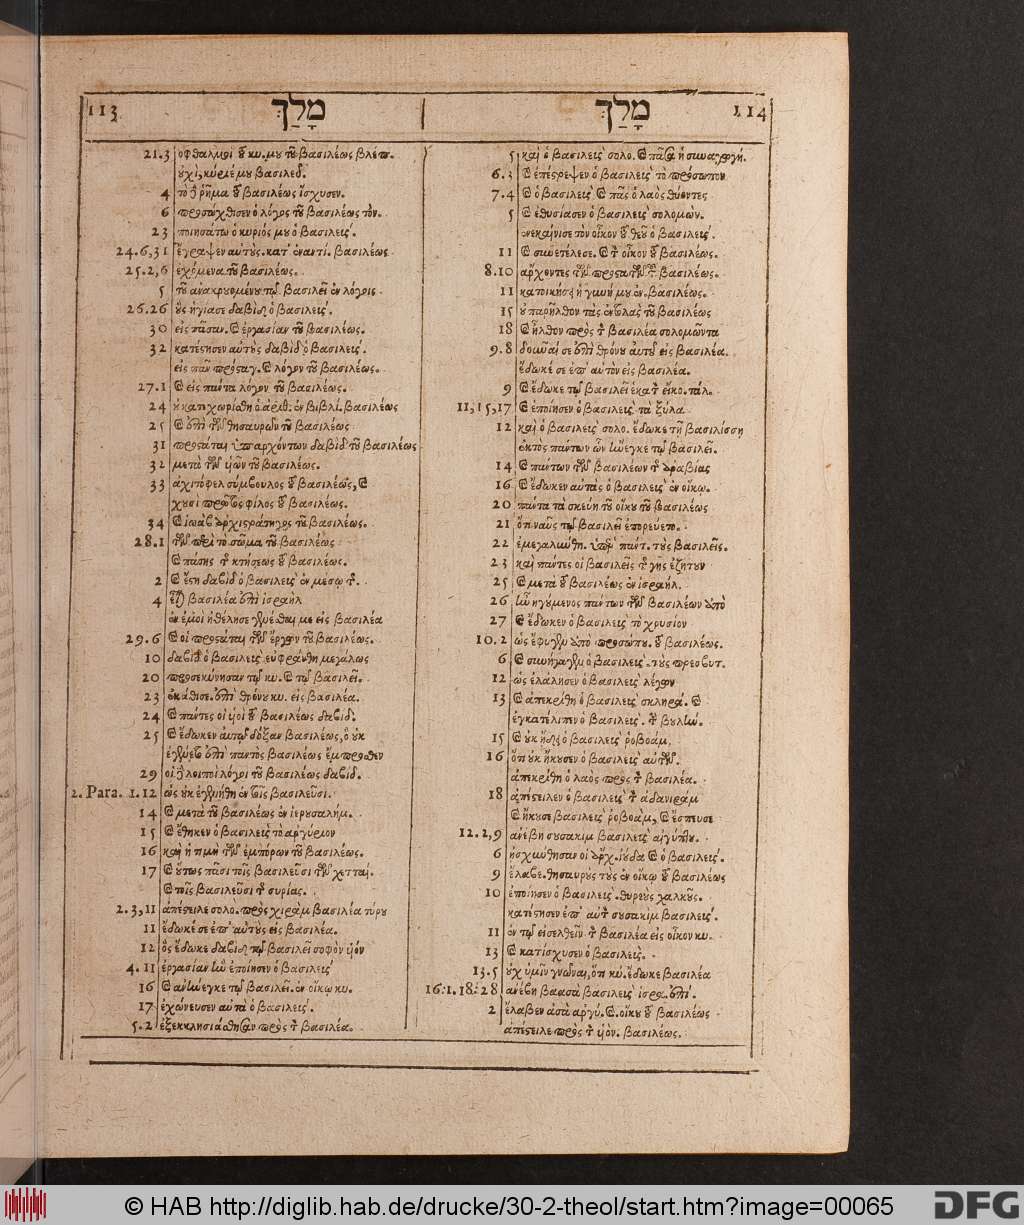 113 מָלַךְ
21.3 ὀφθαλμοὶ τοῦ κυ. μου τοῦ βασιλέως βλέπ.
οὐχὶ, κύριέ μου βασιλεῦ
4 τὸ ῥῆμα τοῦ βασιλέως ἴσχυσεν.
6 προσώχθισεν ὁ λόγος τοῦ βασιλέως τὸν.
23 ποιησάτω ὁ κυριός μου ὁ βασιλεὺς.
24.6,31 ἔγραψεν αὐτοὺς. κατ' ἐναντί. βασιλέως
25.2,6 ἐχόμενα τοῦ βασιλέως.
5 τῷ ἀνακρουομένῳ τῷ βασιλεῖ ἐν λόγοις
26.26 οὓς ἡγίασε δαβὶδ ὁ βασιλεὺς.
30 εἰς πᾶσαν. καὶ ἐργασίαν τοῦ βασιλέως.
32 κατέστησεν αὐτοὺς δαβὶδ ὁ βασιλεὺς.
εἰς πᾶν πρόσταγ. καὶ λόγον τοῦ βασιλέως.
27.1 καὶ εἰς πάντα λόγον τοῦ βασιλέως.
24 οὐ κατεχωρίσθη ὁ ἀριθ. ἐν βιβλί. βασιλέως
25 καὶ ἐπὶ τῶν θησαυρῶν τοῦ βασιλέως
31 προστάται ὑπαρχόντων δαβὶδ τοῦ βασιλέως
32 μετὰ τῶν υἱῶν τοῦ βασιλέως.
33 ἀχιτόφελ σύμβουλος τοῦ βασιλέως, καὶ
χουσὶ πρῶτος φίλος τοῦ βασιλέως.
34 καὶ ἰωὰβ ἀρχιστράτηγος τοῦ βασιλέως.
28.1 τῶν περὶ τὸ σῶμα τοῦ βασιλέως
καὶ πάσης τῆς κτήσεως τοῦ βασιλέως.
2 καὶ ἔστη δαβὶδ ὁ βασιλεὺς ἐν μέσῳ τῆς.
4 εἶναι βασιλέα ἐπὶ ἰσραὴλ
ἐν ἐμοὶ ἠθέλησε γενέσθαι με εἰς βασιλέα
29.6 καὶ οἱ προστάται τῶν ἔργων τοῦ βασιλέως.
10 δαβὶδ ὁ βασιλεὺς εὐφράνθη μεγάλως
20 προσεκύνησαν τῷ κυ. καὶ τῷ βασιλεῖ.
23 ἐκάθισε. ἐπὶ θρόνου κυ. εἰς βασιλέα.
24 καὶ πάντες οἱ υἱοὶ τοῦ βασιλέως δαβὶδ.
25 καὶ ἔδωκεν αὐτῷ δόξαν βασιλέως, ὃ οὐκ
ἐγένετο ἐπὶ παντὸς βασιλέως ἔμπροσθεν
29 οἱ δὲ λοιποὶ λόγοι τοῦ βασιλέως δαβὶδ.
2. Para. 1.12 ὡς οὐκ ἐγενήθη ἐν τοῖς βασιλεῦσι.
14 καὶ μετὰ τοῦ βασιλέως ἐν ἱερουσαλήμ.
15 καὶ ἔθηκεν ὁ βασιλεὺς τὸ ἀργύριον
16 καὶ ἡ τιμὴ τῶν ἐμπόρων τοῦ βασιλέως.
17 καὶ οὕτως πᾶσι τοῖς βασιλεῦσι τῶν χετταί.
καὶ τοῖς βασιλεῦσι τῆς συρίας.
2.3,11 ἀπέστειλε σολο. πρὸς χιρὰμ βασιλέα τύρου
11 ἔδωκέ σε ἐπ' αὐτοὺς εἰς βασιλέα.
12 ὃς ἔδωκε δαβὶδ τῷ βασιλεῖ σοφὸν υἱόν
4.11 ἐργασίαν ἣν ἐποίησεν ὁ βασιλεὺς
16 καὶ ἀνήνεγκε τῷ βασιλεῖ. ἐν οἴκῳ κυ.
17 ἐχώνευσεν αὐτὰ ὁ βασιλεὺς.
5.2 ἐξεκκλησιάσθησαν πρὸς τὸν βασιλέα.
מָלַךְ 114
5 καὶ ὁ βασιλεὺς σολο. καὶ πᾶσα ἡ συναγωγή.
6.3 καὶ ἐπέστρεψεν ὁ βασιλεὺς τὸ πρόσωπον
7.4 καὶ ὁ βασιλεὺς καὶ πᾶς ὁ λαὸς θύοντες
5 καὶ ἐθυσίασεν ὁ βασιλεὺς σολομὼν.
ἐνεκαίνισε τὸν οἶκον τοῦ θεοῦ ὁ βασιλεὺς.
11 καὶ συνετέλεσε. καὶ τὸν οἶκον τοῦ βασιλέως.
8.10 ἄρχοντες τῶν προστατῶν τοῦ βασιλέως.
11 κατοικήσει ἡ γυνή μου ἐν. βασιλέως.
15 οὐ παρῆλθον τὰς ἐντολὰς τοῦ βασιλέως
18 καὶ ἦλθον πρὸς τὸν βασιλέα σολομῶντα
9.8 δοῦναί σε ἐπὶ θρόνου αὐτοῦ εἰς βασιλέα.
ἔδωκέ σε ἐπ' αὐτὸν εἰς βασιλέα.
9 καὶ ἔδωκε τῷ βασιλεῖ ἑκατὸν εἴκο. τάλ.
11,15,17 καὶ ἐποίησεν ὁ βασιλεὺς τὰ ξύλα
12 καὶ ὁ βασιλεὺς σολο. ἔδωκε τῇ βασιλίσσῃ
ἐκτὸς πάντων ὧν ἤνεγκε τῷ βασιλεῖ.
14 καὶ πάντων τῶν βασιλέων τῆς ἀραβίας
16 καὶ ἔδωκεν αὐτὰς ὁ βασιλεὺς ἐν οἴκῳ.
20 πάντα τὰ σκεύη τοῦ οἴκου τοῦ βασιλέως
21 ὅτι ναῦς τῷ βασιλεῖ ἐπορεύετο.
22 ἐμεγαλύνθη. ὑπὲρ πάντ. τοὺς βασιλεῖς.
23 καὶ πάντες οἱ βασιλεῖς τῆς γῆς ἐζήτουν
25 καὶ μετὰ τοῦ βασιλέως ἐν ἰσραὴλ.
26 ἦν ἡγούμενος πάντων τῶν βασιλέων ἀπὸ
27 καὶ ἔδωκεν ὁ βασιλεὺς τὸ χρυσίον
10.2 ὡς ἔφυγεν ἀπὸ προσώπου. τοῦ βασιλέως.
6 καὶ συνήγαγεν ὁ βασιλεὺς. τοὺς πρεσβυτ.
12 ὡς ἐλάλησεν ὁ βασιλεὺς λέγων
13 καὶ ἀπεκρίθη ὁ βασιλεὺς σκληρά. καὶ
ἐγκατέλιπεν ὁ βασιλεὺς. τὴν βουλὴν.
15 καὶ οὐκ ἤκουσεν ὁ βασιλεὺς ῥοβοάμ.
16 ὅτι οὐκ ἤκουσεν ὁ βασιλεὺς αὐτῶν.
ἀπεκρίθη ὁ λαὸς πρὸς τὸν βασιλέα.
18 ἀπέστειλεν ὁ βασιλεὺς τὸν ἀδωνιρὰμ
καὶ ἤκουσε βασιλεὺς ῥοβοὰμ, καὶ ἔσπευσε
12.2,9 ἀνέβη σουσακὶμ βασιλεὺς αἰγύπτου.
6 ᾐσχύνθησαν οἱ ἄρχ. ἰούδα καὶ ὁ βασιλεὺς.
9 ἔλαβε. θησαυροὺς τοὺς ἐν οἴκῳ τοῦ βασιλέως
10 ἐποίησεν ὁ βασιλεὺς. θυρεοὺς χαλκοῦς.
κατέστησεν ἐπ' αὐτὸν σουσακὶμ βασιλεὺς.
11 ἐν τῷ εἰσελθεῖν τὸν βασιλέα εἰς οἶκον κυ.
13 καὶ κατίσχυσεν ὁ βασιλεὺς.
13.5 οὐχ ὑμῖν γνῶναι, ὅτι κυ. ἔδωκε βασιλέα
16.1. 18.28 ἀνέβη βαασὰ βασιλεὺς ἰσρα. ἐπὶ.
2 ἔλαβεν ἀσὰ ἀργύ. καὶ. οἴκου τοῦ βασιλέως
ἀπέστειλε πρὸς τὸν υἱὸν. βασιλέως.
© HAB http://diglib.hab.de/drucke/30-2-theol/start.htm?image=00065
DFG